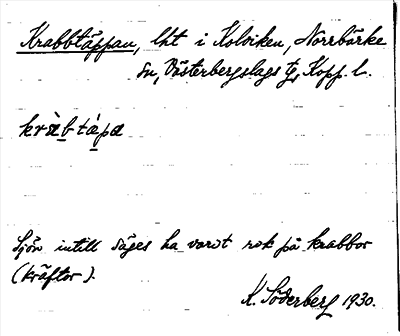 Krabbtäppan, lht i Kolviken, Norrbärke
sn, Västerbergslags tg, Kopp. l.
kràbtápa
Sjön intill säges ha varit rik på krabbor
(kräftor).
K. Söderberg 1930.